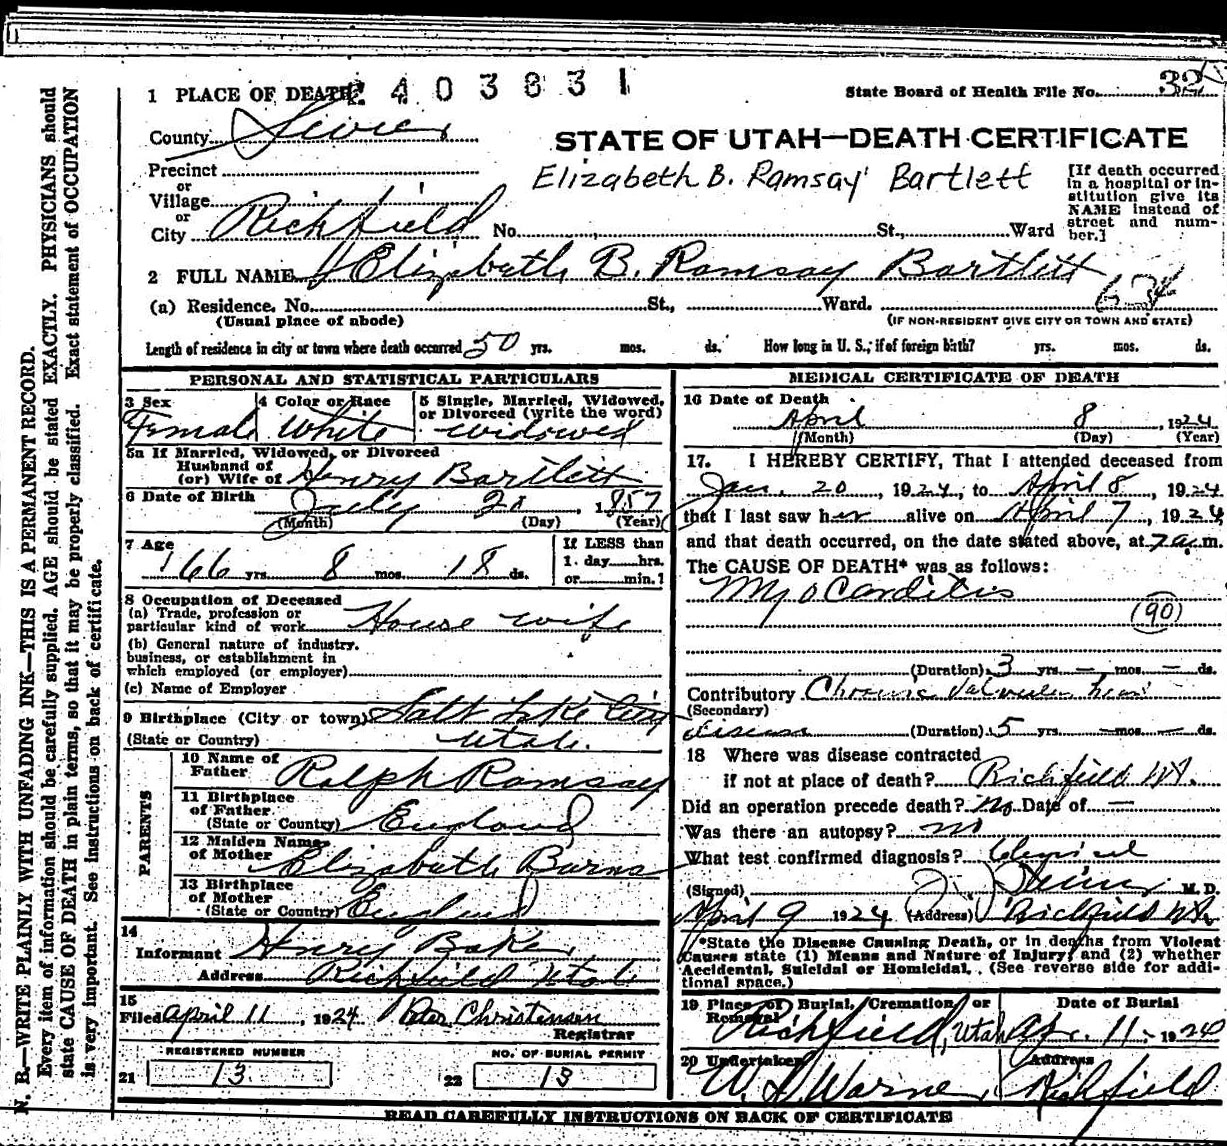 1 PLACE OF DEATH 2403831
State Board of Health File No. 32
County Sevier
STATE OF UTAH—DEATH CERTIFICATE
Precinct
or
Village
or
City Richfield No. St., Ward
Elizabeth B. Ramsay Bartlett
[If death occurred
in a hospital or in-
stitution give its
NAME instead of
street and num-
ber.]
2 FULL NAME Elizabeth B. Ramsay Bartlett
(a) Residence. No. St., Ward.
(Usual place of abode) (IF NON-RESIDENT GIVE CITY OR TOWN AND STATE)
Length of residence in city or town where death occurred 50 yrs. mos. ds. How long in U. S., if of foreign birth? yrs. mos. ds.
PERSONAL AND STATISTICAL PARTICULARS
3 Sex 4 Color or Race 5 Single, Married, Widowed,
or Divorced (write the word)
Female White widowed
5a If Married, Widowed, or Divorced
Husband of
(or) Wife of Henry Bartlett
6 Date of Birth July 20, 1857
(Month) (Day) (Year)
7 Age 66 yrs. 8 mos. 18 ds.
If LESS than
1 day hrs.
or min.
8 Occupation of Deceased
(a) Trade, profession or
particular kind of work House wife
(b) General nature of industry,
business, or establishment in
which employed (or employer)
(c) Name of Employer
9 Birthplace (City or town) Salt Lake City
(State or Country) Utah.
PARENTS
10 Name of
Father Ralph Ramsay
11 Birthplace
of Father
(State or Country) England
12 Maiden Name
of Mother Elizabeth Burns
13 Birthplace
of Mother
(State or Country) England
14
Informant Henry Baker
Address Richfield Utah
15
Filed April 11, 1924 Peter Christensen
Registrar
REGISTERED NUMBER NO. OF BURIAL PERMIT
21 13 22 13
MEDICAL CERTIFICATE OF DEATH
16 Date of Death
April 8, 1924
(Month) (Day) (Year)
17. I HEREBY CERTIFY, That I attended deceased from
Jan. 20, 1924, to April 8, 1924
that I last saw her alive on April 7, 1924
and that death occurred, on the date stated above, at 7 a.m.
The CAUSE OF DEATH* was as follows:
Myocarditis
(90)
(Duration) 3 yrs. — mos. — ds.
Contributory Chronic Valvular heart
(Secondary)
disease (Duration) 5 yrs. — mos. — ds.
18 Where was disease contracted
if not at place of death? Richfield Ut.
Did an operation precede death? No Date of —
Was there an autopsy? no
What test confirmed diagnosis? Clinical
(Signed) M. D.
April 9 1924 (Address) Richfield Ut
*State the Disease Causing Death, or in deaths from Violent
Causes state (1) Means and Nature of Injury; and (2) whether
Accidental, Suicidal or Homicidal. (See reverse side for addi-
tional space.)
19 Place of Burial, Cremation or
Removal Date of Burial
Richfield, Utah Apr. 11- 1924
20 Undertaker Address
W. Warne, Richfield
READ CAREFULLY INSTRUCTIONS ON BACK OF CERTIFICATE
N. B.—WRITE PLAINLY WITH UNFADING INK—THIS IS A PERMANENT RECORD.
Every item of information should be carefully supplied. AGE should be stated EXACTLY. PHYSICIANS should
state CAUSE OF DEATH in plain terms, so that it may be properly classified. Exact statement of OCCUPATION
is very important. See instructions on back of certificate.